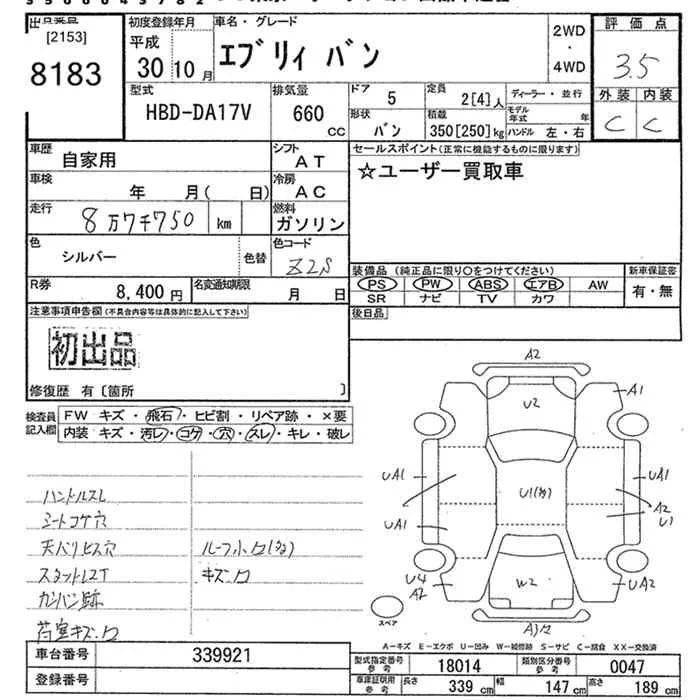 出品番号
[2153]
8183
初度登録年月
平成
30 10 月
車名・グレード
エブリィ バン
2WD
・
4WD
評価点
3.5
外装 内装
C C
型式
HBD-DA17V
排気量
660
CC
ドア
5
定員
2[4]人
形状
バン
積載
350[250]kg
ディーラー・並行
モデル年式 年
ハンドル 左・右
車歴
自家用
シフト
AT
セールスポイント(正常に機能するものに限ります)
☆ユーザー買取車
車検
年 月( 日)
冷房
AC
走行
8万7千750 km
燃料
ガソリン
色
シルバー
色替
色コード
Z2S
R券
8,400 円
名変通知期限
月 日
装備品 (純正品に限り○をつけてください)
PS PW ABS エアB AW
SR ナビ TV カワ
新車保証書
有・無
後日品
注意事項申告欄(不具合内容等は具体的に記入して下さい)
初出品
修復歴 有〔箇所 〕
検査員記入欄
FW キズ・飛石・ヒビ割・リペア跡・×要
内装 キズ・汚レ・コゲ・穴・スレ・キレ・破レ
ハンドルスレ
シートコゲ穴
天バリビス穴
カンバン跡
A2
A1
U2
UA1
UA1
U1
UA1
A2
U1
U4
A2
W2
UA2
スペア
A-キズ E-エクボ U-凹み W-補修跡 S-サビ C-腐食 XX-交換済
車台番号
339921
登録番号
型式指定番号
参考
18014
類別区分番号
参考
0047
車庫証明用
参考
長さ 339 cm
幅 147 cm
高さ 189 cm